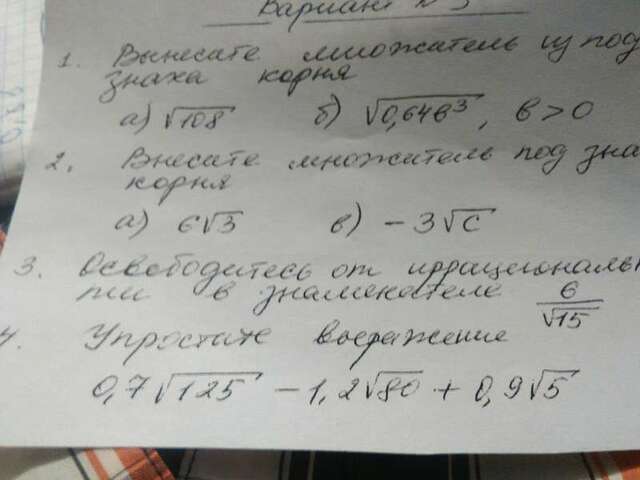 Вариант №3
1. Вынесите множитель из под
знака корня
а) √108 б) √0,64в³, в>0
2. Внесите множитель под зна
корня
а) 6√3 в) -3√c
3. Освободитесь от иррациональн
ти в знаменателе 6/√15
4. Упростите выражение
0,7√125 - 1,2√80 + 0,9√5